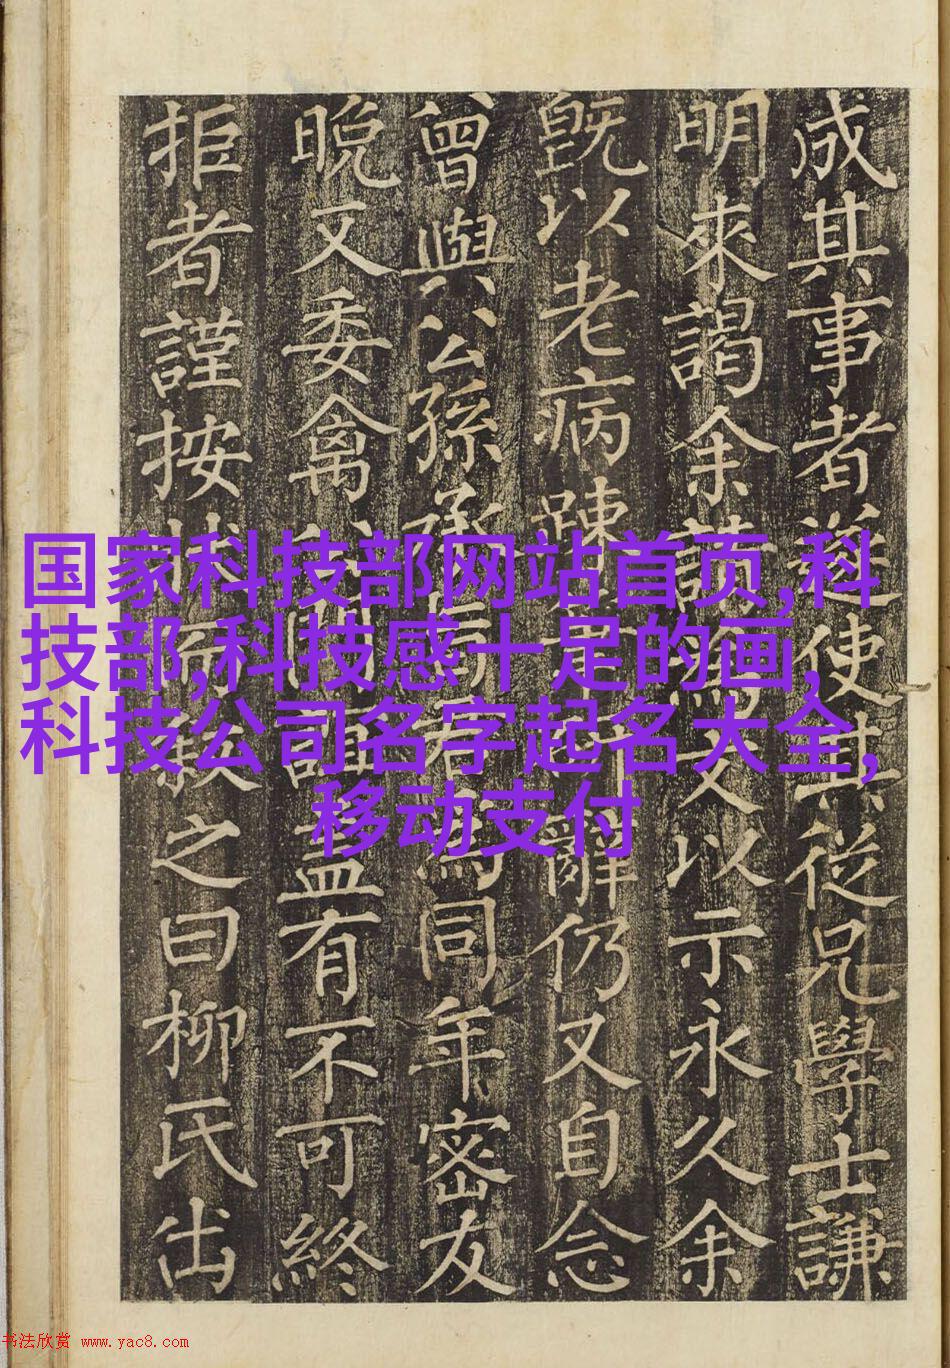 成其事者遂使其從兄學士謙
明來謁余請文以示永久余
旣以老病踈辭仍又自念
曾與公孫為同年密友
晩又委禽盖有不可終
拒者謹按之曰柳氏出
国家科技部网站首页,科
技部,科技感十足的画,
科技公司名字起名大全,
移动支付
书法欣赏 www.yac8.com